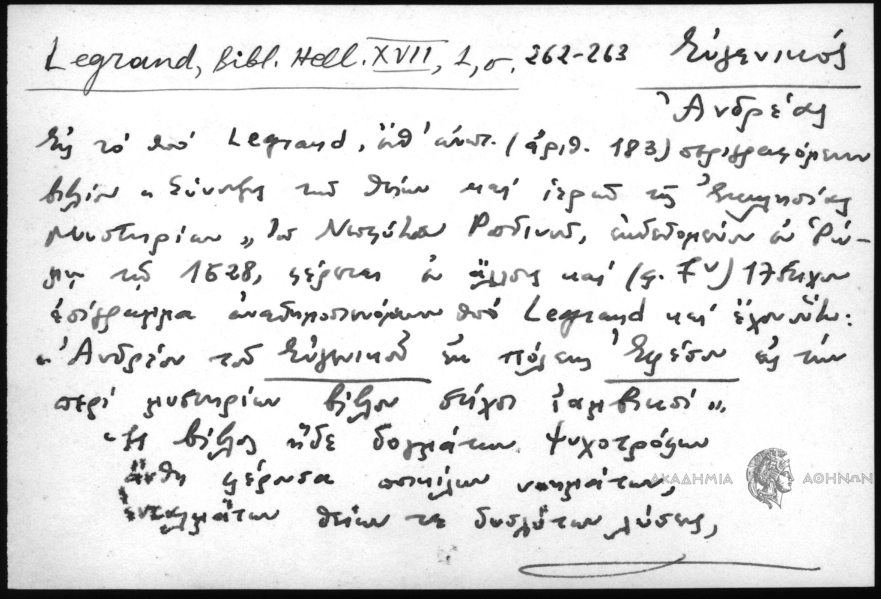 Legrand, Bibl. Hell. XVII, 1, σ. 262-263 Εὐγενικός
Ἀνδρέας
Εἰς τό ὑπό Legrand, ἔνθ' ἀνωτ. (ἀριθ. 183) περιγραφόμενον
βιβλίον « Σύνοψις τῶν θείων καί ἱερῶν τῆς Ἐκκλησίας
Μυστηρίων „ τοῦ Νεοφύτου Ροδινοῦ, ἐκδεδομένον ἐν Ῥώ-
μῃ τῷ 1628, φέρεται ἐν ἄλλοις καί (φ. 7ᵛ) 17στιχον
ἐπίγραμμα ἀναδημοσιευόμενον ὑπό Legrand καί ἔχον οὕτω:
« Ἀνδρέου τοῦ Εὐγενικοῦ ἐκ πόλεως Ἐφέσου εἰς τήν
περί μυστηρίων βίβλον στίχοι ἰαμβικοί „.
“Η βίβλος ἥδε δογμάτων ψυχοτρόφων
ἄνθη φέρουσα ποικίλων νοημάτων,
ἐνταλμάτων θείων τε δυσλύτων λύσεις,
ΑΚΑΔΗΜΙΑ ΑΘΗΝΩΝ